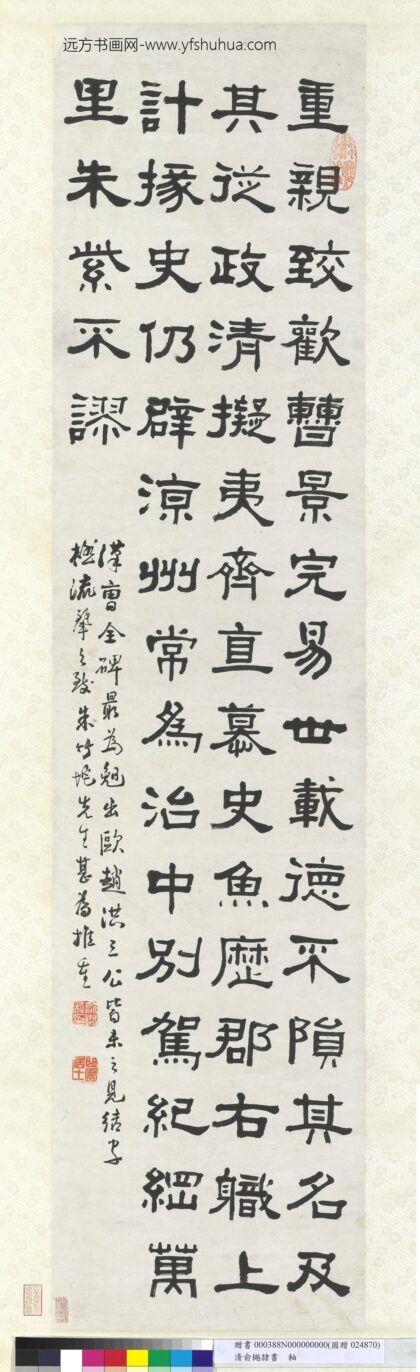 远方书画网-www.yfshuhua.com
重親致歡曹景完易世載德不隕其名及
其從政清擬夷齊直慕史魚歷郡右職上
計掾史仍辟涼州常為治中別駕紀綱萬
里朱紫不謬
漢曹全碑最為晚出歐趙洪三公皆未之見結字
極流麗之致朱竹垞先生甚為推重
贈書 000388N000000000(國贈 024870)
清俞樾隸書 軸